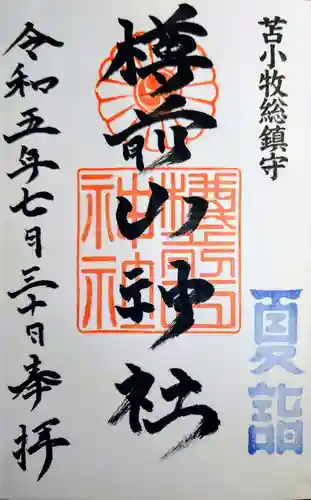 苫小牧総鎮守
夏詣
樽前山神社
令和五年七月三十日奉拝